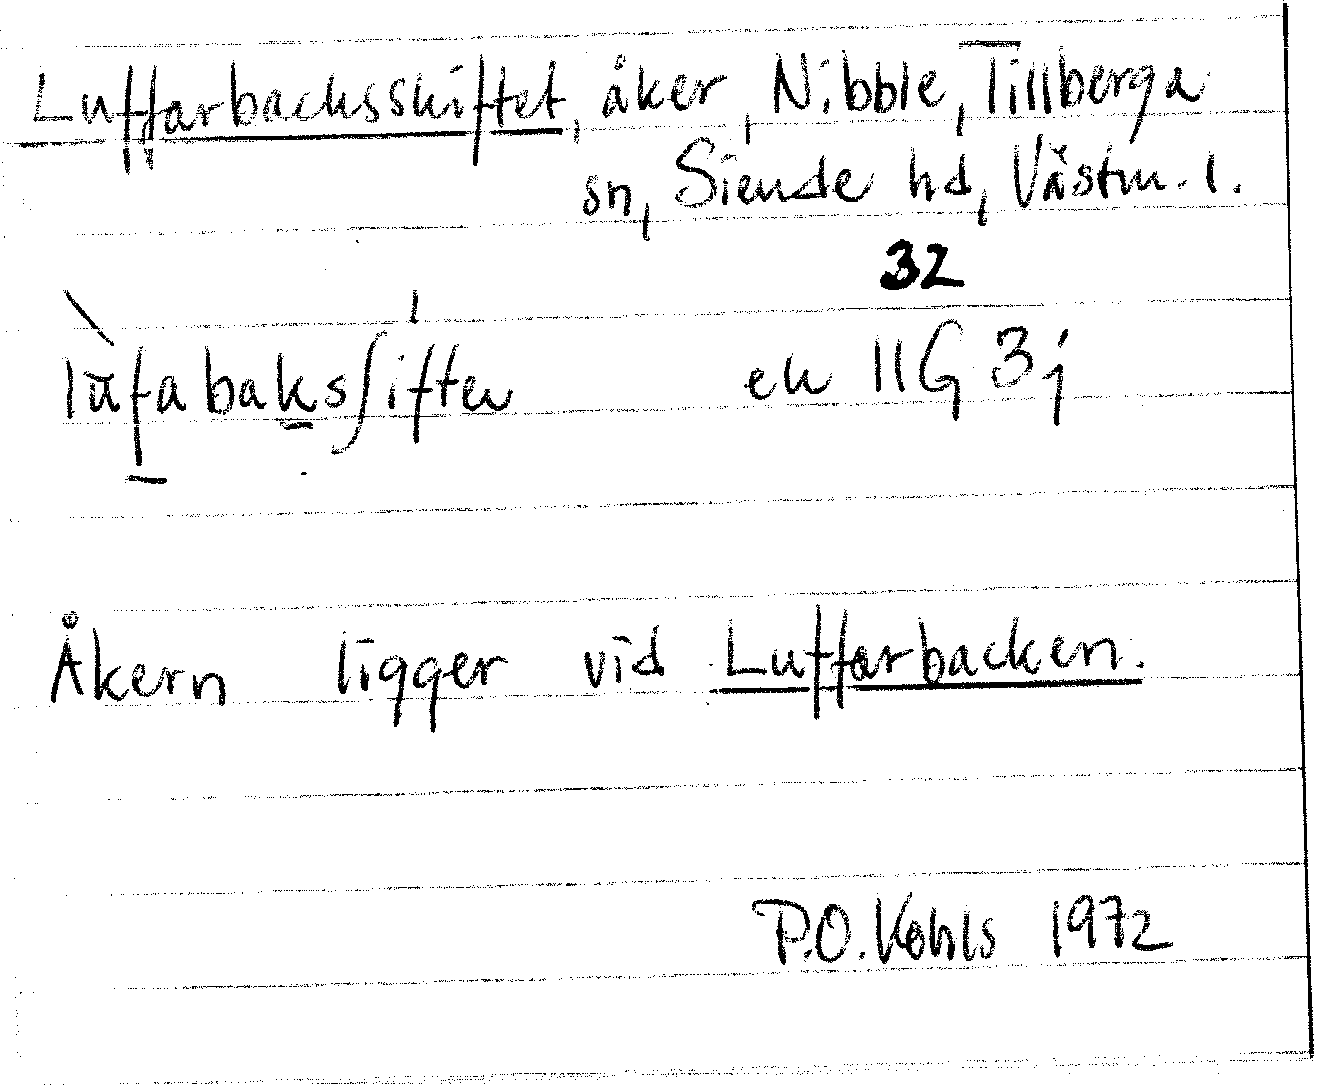 Luffarbacksskiftet, åker, Nibble, Tillberga
sn, Siende hd, Västm. l.
32
lufabaksʃiften ek 11G 3j
Åkern ligger vid Luffarbacken.
P.O. Kohls 1972